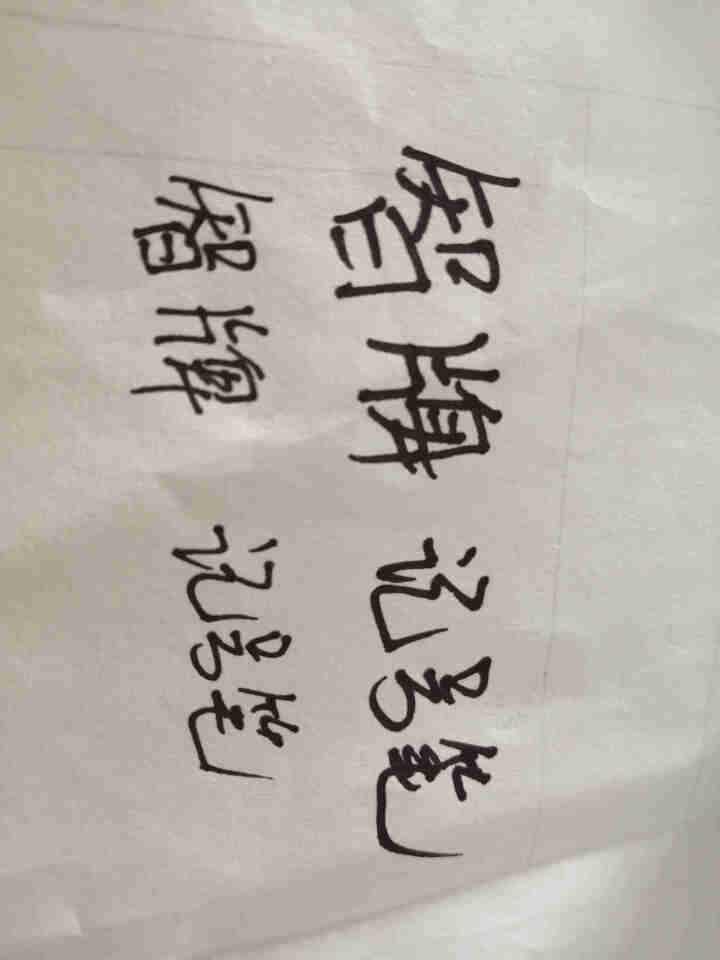 智牌 记号笔
智牌 记号笔